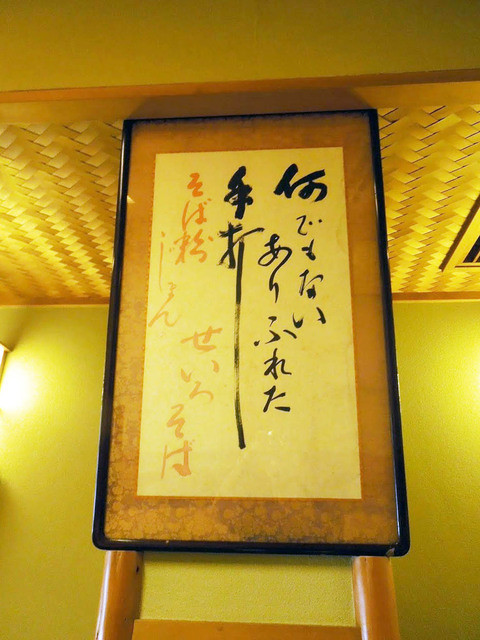 何でもない
ありふれた
手打
そば粉
せいろそば